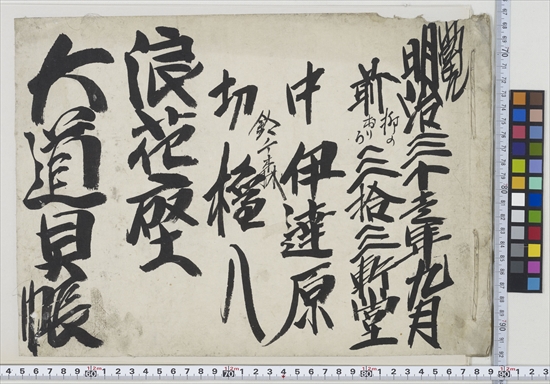 明治三十三年九月
前 柳のおりう 三拾三軒堂
中 伊達原
切 鈴ヶ森 権八
浪花座
大道具帳